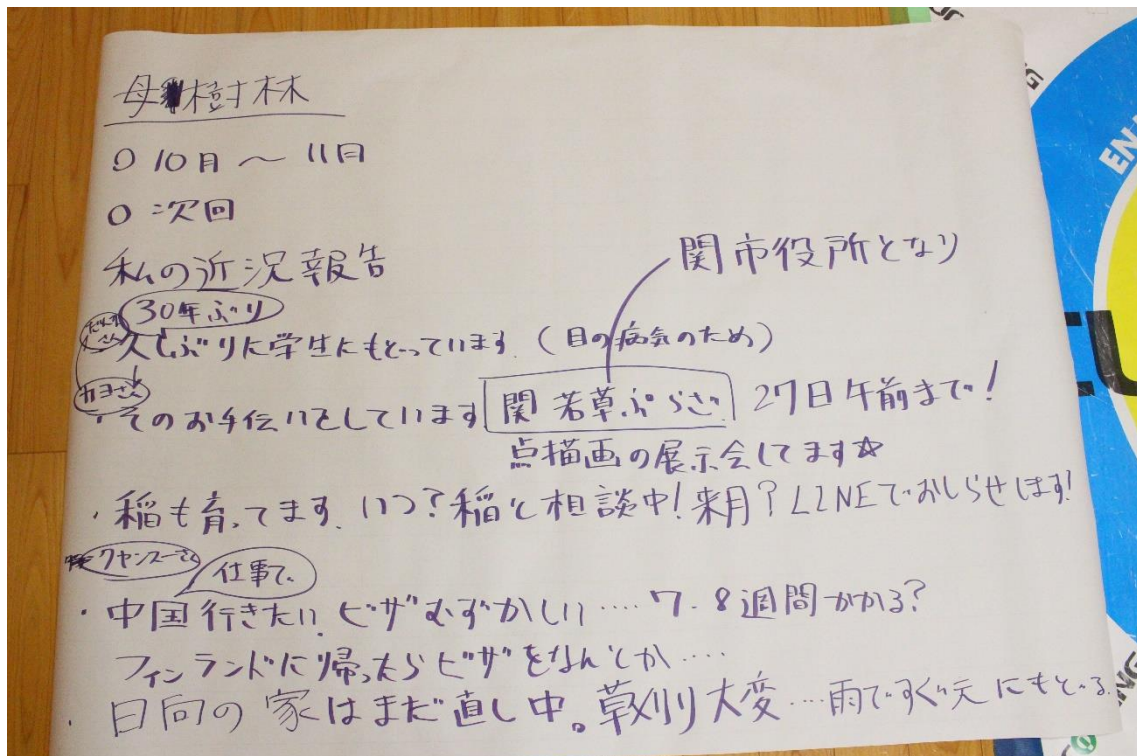 母樹林
○ 10月〜11日
○ 次回
私の近況報告
関市役所となり
30年ぶり
さん
久しぶりに学生にもどっています。(目の病気のため)
カヨさん
・そのお手伝いをしています 関 若草ぷらざ 27日午前まで!
点描画の展示会してます☆
・稲も育ってます。いつ?稲と相談中!来月?LINEでおしらせします!
クヤンスーさん
仕事で、
・中国行きたい。ビザむずかしい‥‥7.8週間かかる?
フィンランドに帰ったらビザをなんとか‥‥
・日向の家はまだ直し中。草刈り大変…雨ですぐ元にもどる。
EN
NG